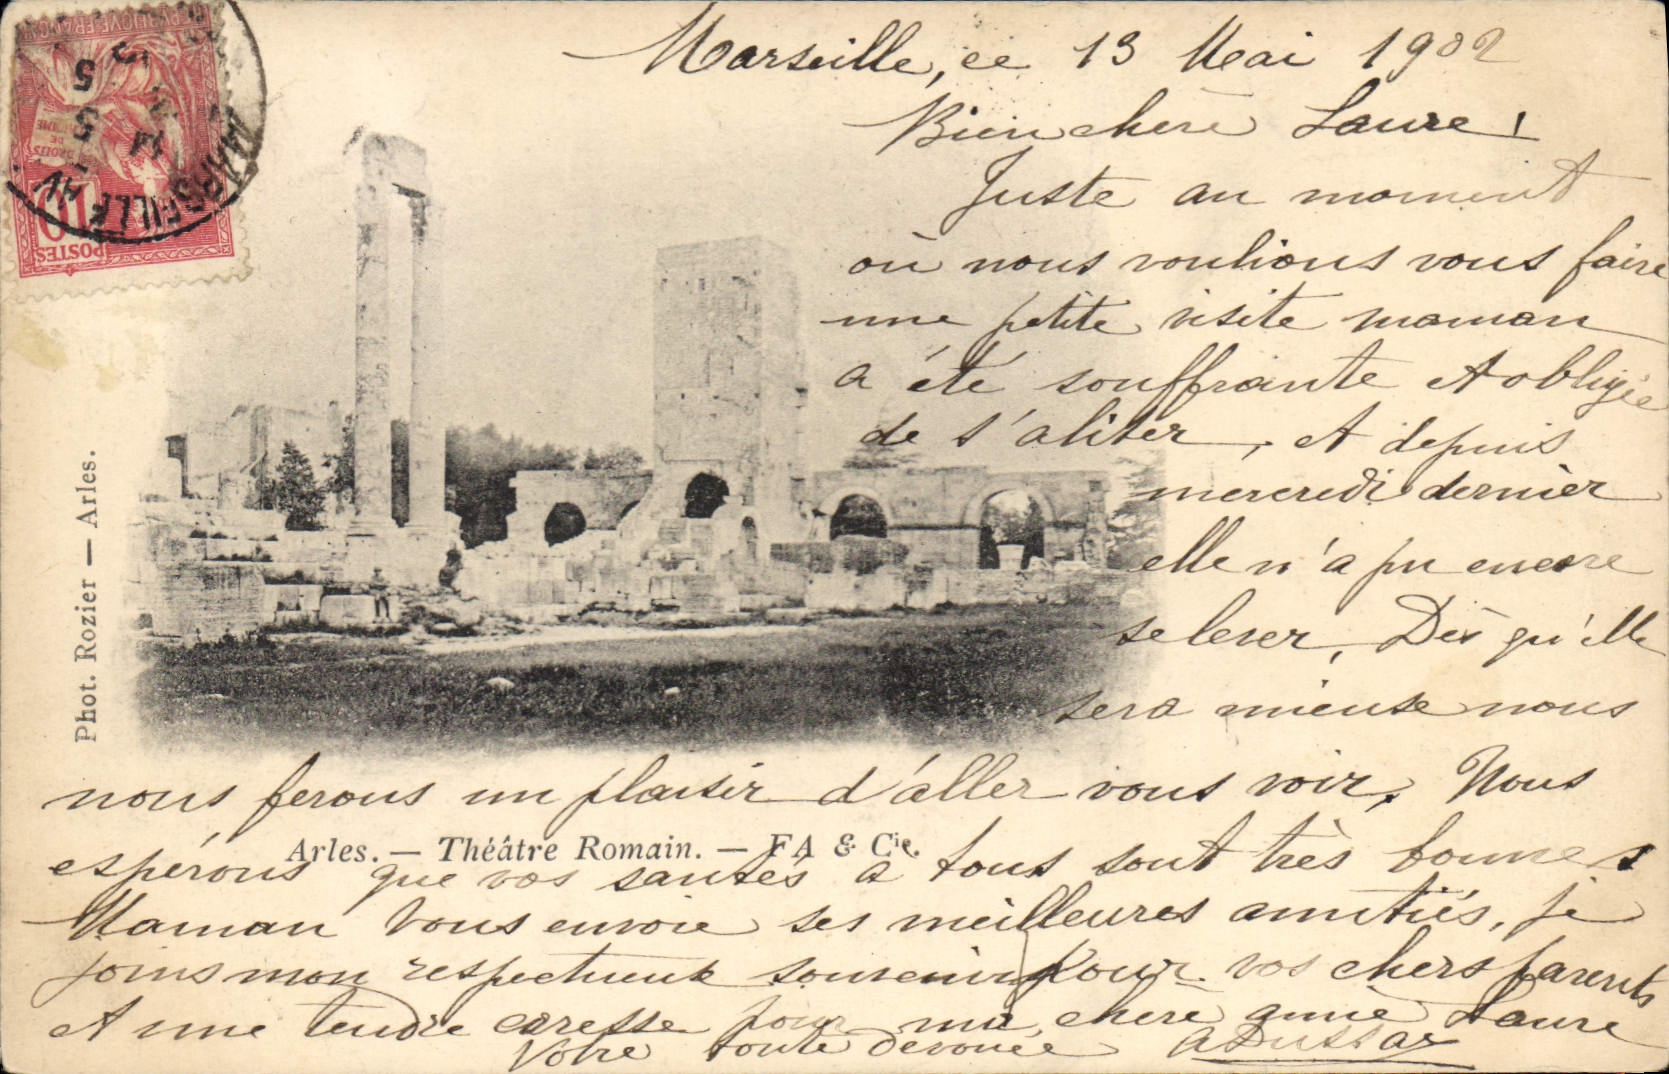 Marseille, ce 13 Mai 1902
Bien chère Laure !
Juste au moment
où nous voulions vous faire
une petite visite maman
a été souffrante et obligée
de s'aliter, et depuis
mercredi dernier
elle n'a pu encore
se lever, Dès qu'elle
sera mieuse nous
nous ferons un plaisir d'aller vous voir. Nous
espérons que vos santés à tous sont très bonnes
Maman vous envoie ses meilleures amitiés, je
joins mon respectueux souvenir pour vos chers parents
et une tendre caresse pour ma chère amie Laure
Votre toute dévouée ADussar
Arles. — Théâtre Romain. — FA & Cie.
Phot. Rozier — Arles.
RÉPUBLIQUE FRANÇAISE
DROITS DE
10
POSTES
MARSEILLE
14
5